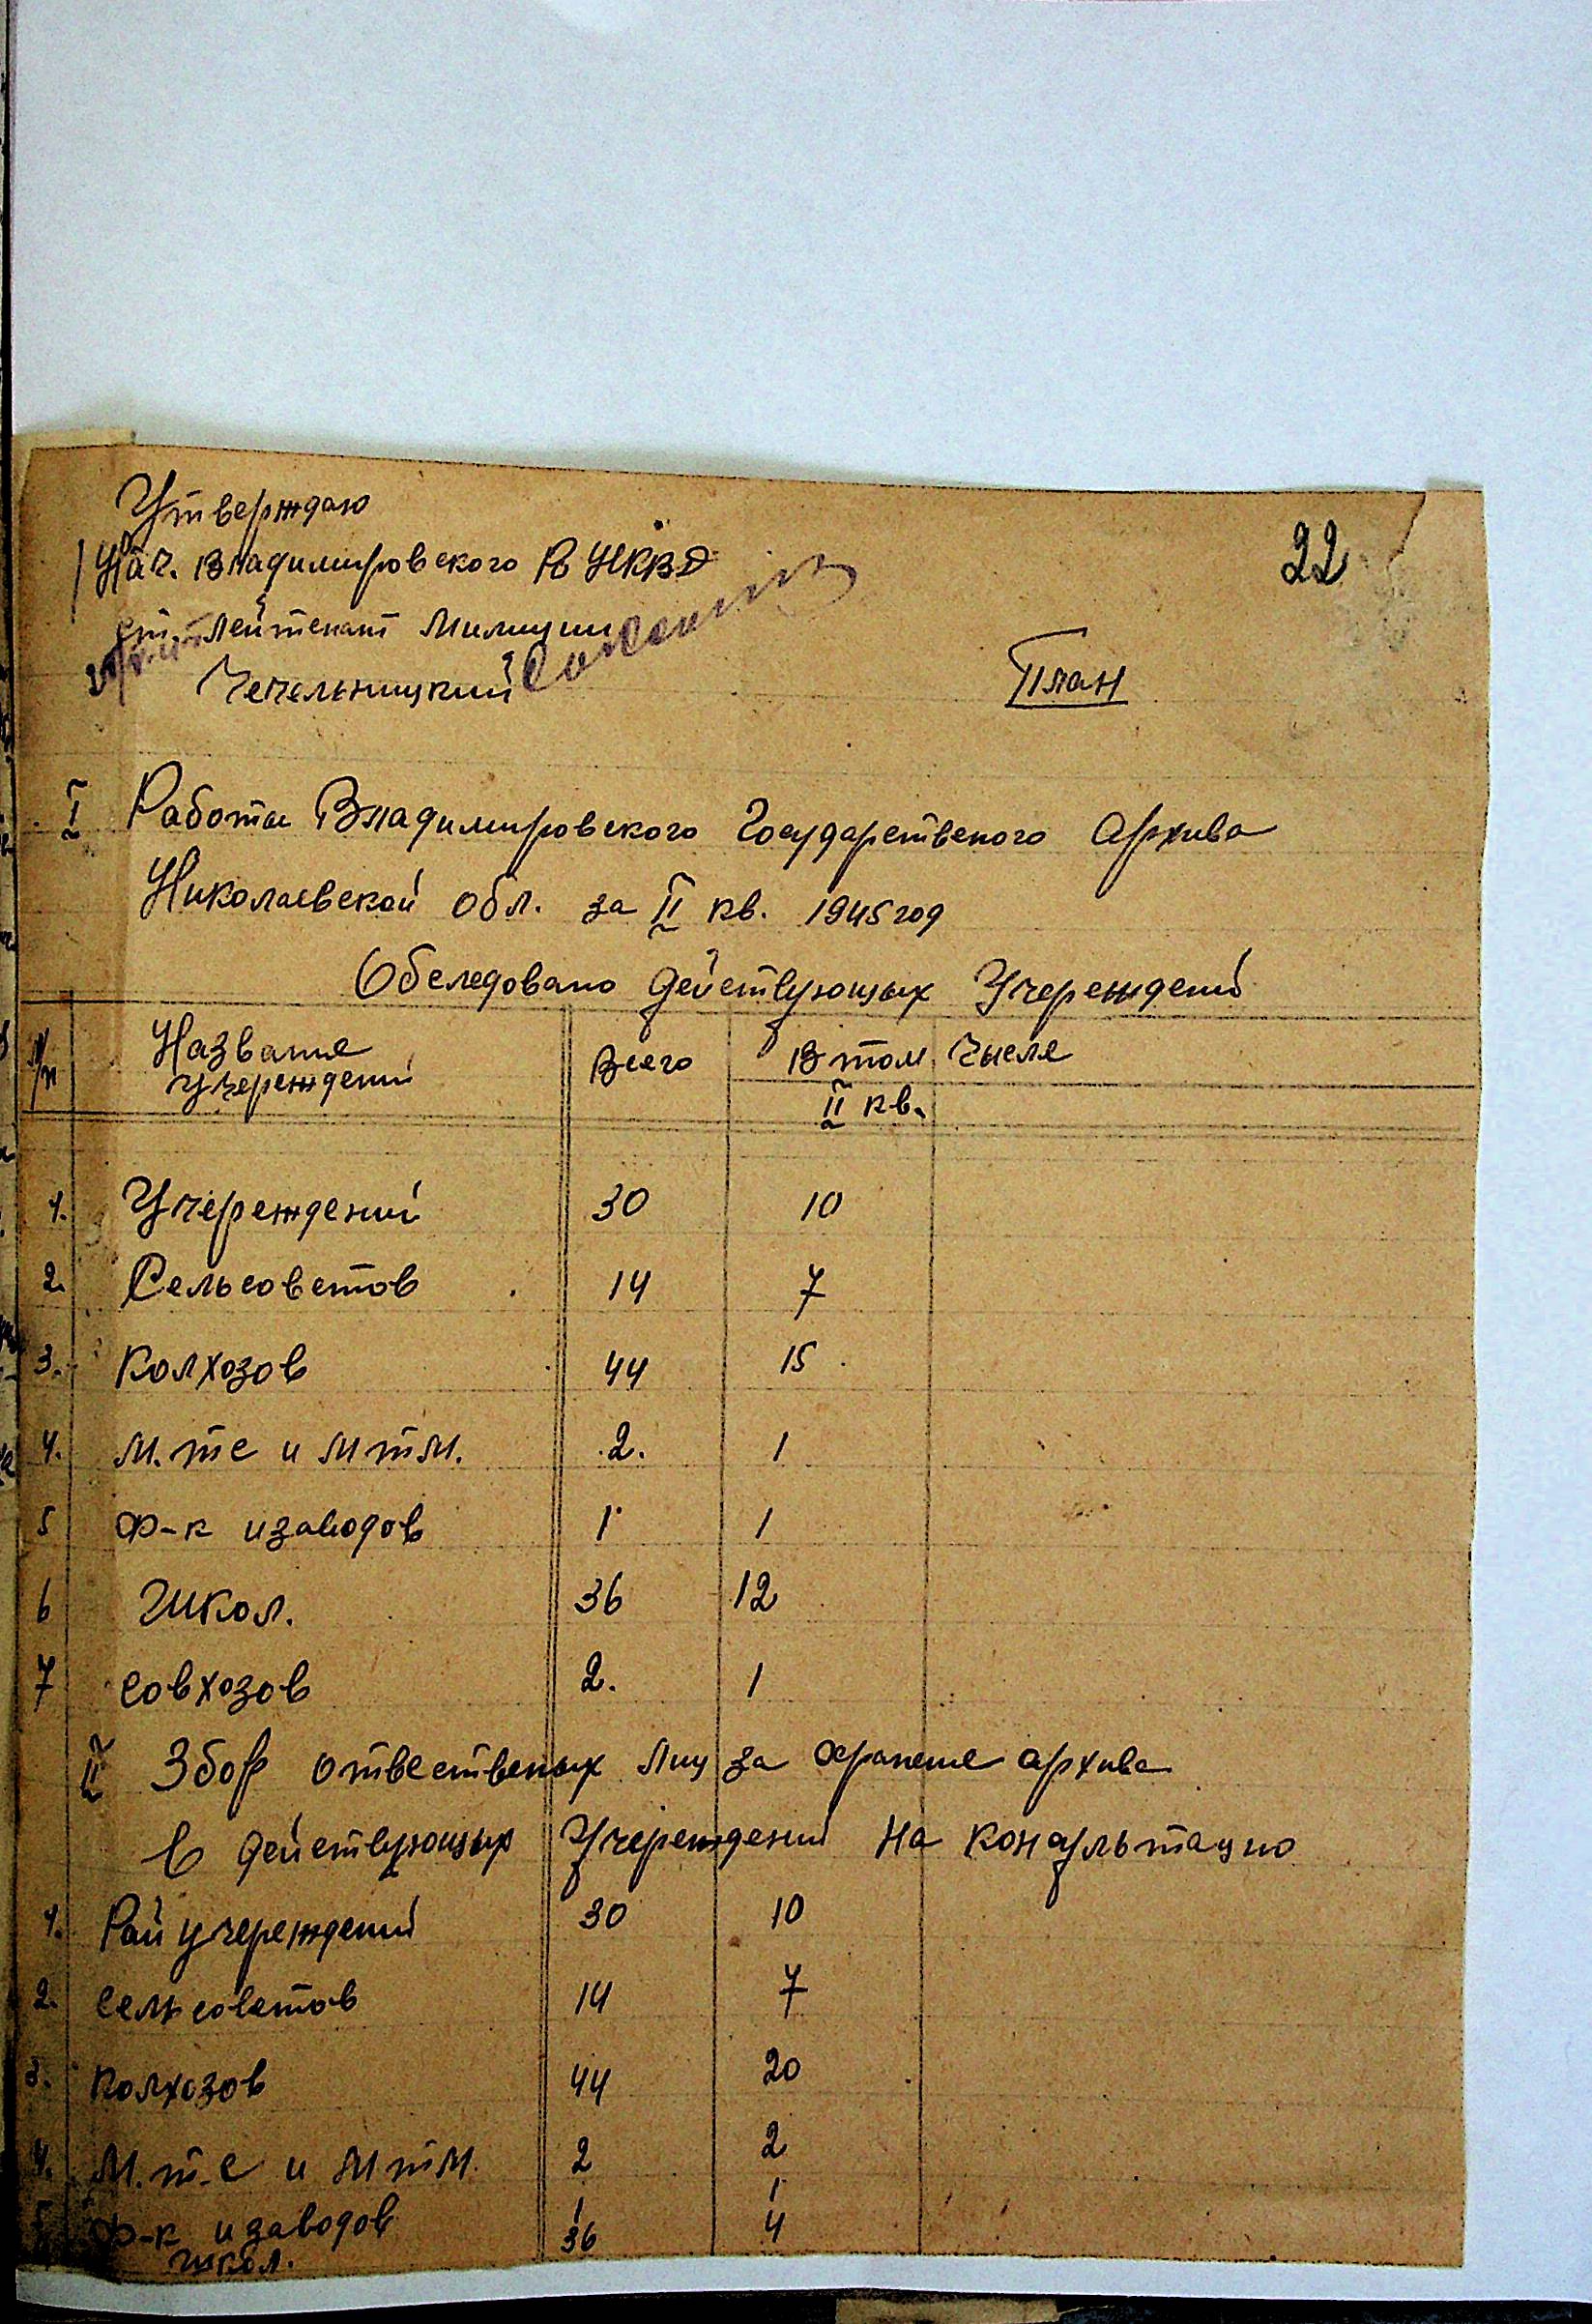 22
Утверждаю
Нач. Владимировского РО НКВД
ст. лейтенант милиции
Чечельницкий
План
I Работы Владимировского Государственого Архива
Николаевской обл. за II кв. 1945 год
Обследовано действующых Учереждений
№/п Название учереждений Всего В том числе
II кв.
1. Учереждений 30 10
2. Сельсоветов 14 7
3. Колхозов 44 15
4. М.тс и мтм. 2. 1
5 Ф-к и заводов 1 1
6 Школ. 36 12
7 совхозов 2. 1
II Збор отвественых лиц за хранение архива
в действующых Учереждений на консультацию
1. Рай учереждений 30 10
2. сельсоветов 14 7
3. колхозов 44 20
4. М.т.с и мтм. 2 2
5. Ф-к и заводов 1 1
школ. 36 4